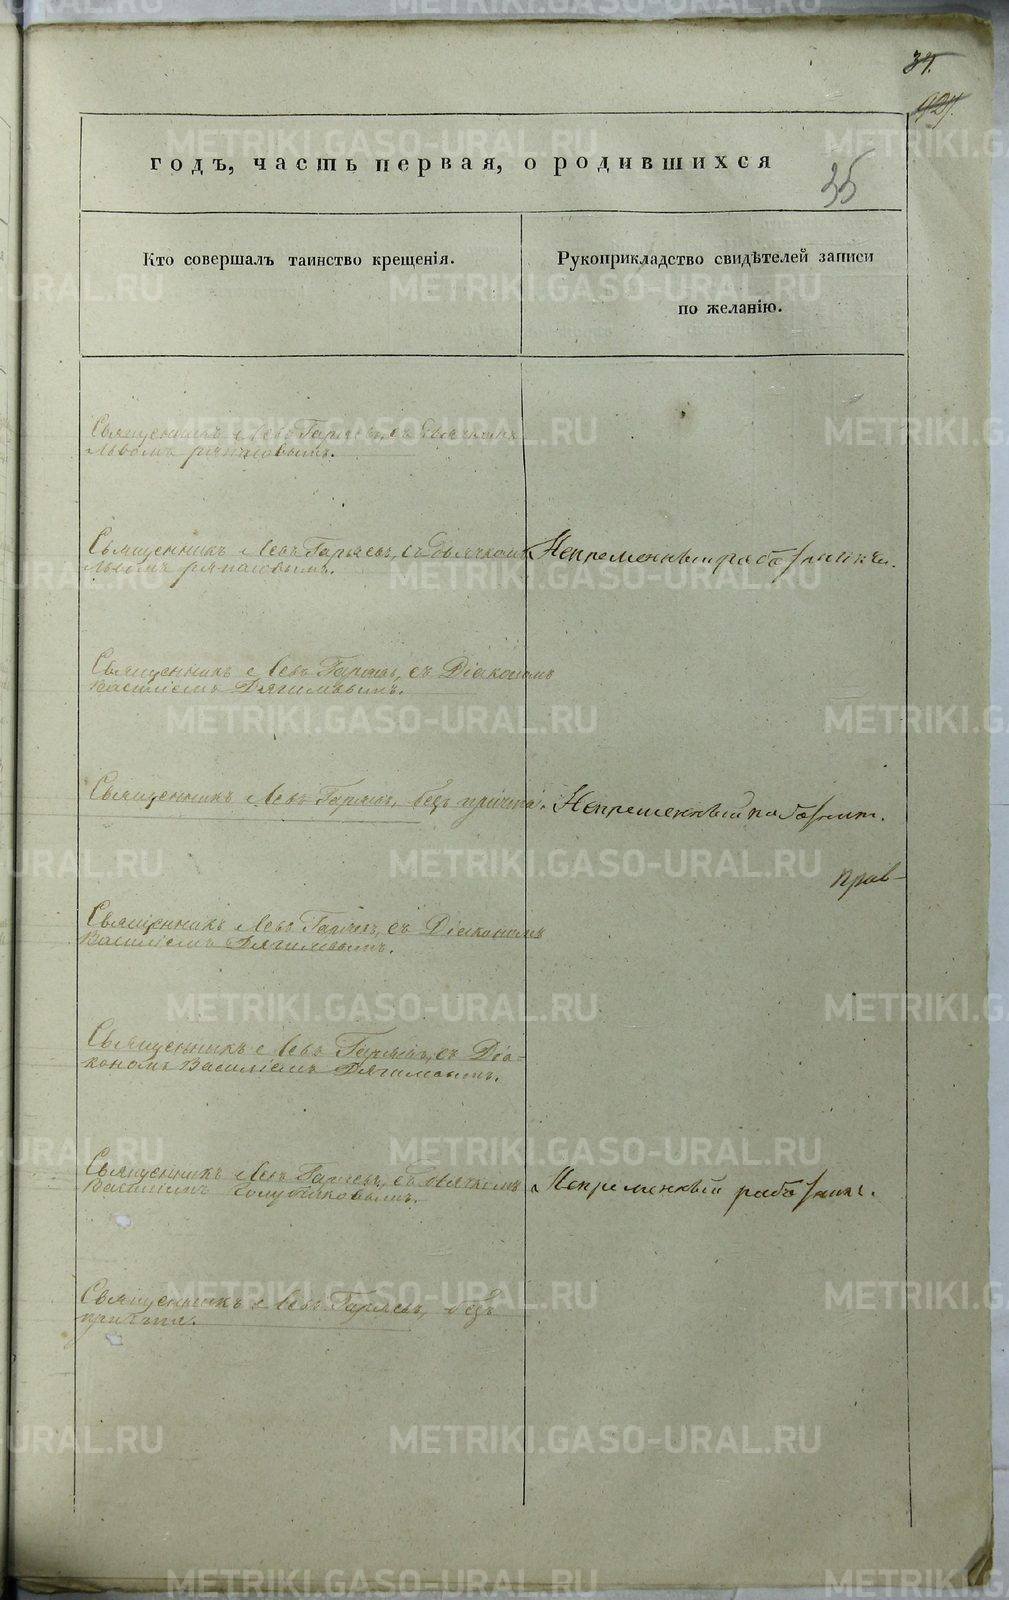 34.
927.
35
годъ, часть первая, о родившихся
Кто совершалъ таинство крещенія.
Рукоприкладство свидѣтелей записи
по желанію.
Священникъ Левъ Гаряевъ, съ Дьячкомъ
Львомъ
Священникъ Левъ Гаряевъ, съ Дьячкомъ
Львомъ
Непременный работникъ.
Священникъ Левъ Гаряевъ, съ Діакономъ
Василіемъ Дягилевымъ.
Священникъ Левъ Гаряевъ, безъ причта.
Непременный работ.
прав-
Священникъ Левъ Гаряевъ, съ Діакономъ
Василіемъ Дягилевымъ.
Священникъ Левъ Гаряевъ, съ Діа-
кономъ Василіемъ Дягилевымъ.
Священникъ Левъ Гаряевъ, съ Дьячкомъ
Василіемъ
Непременный работникъ.
Священникъ Левъ Гаряевъ, безъ
причта.
METRIKI.GASO-URAL.RU